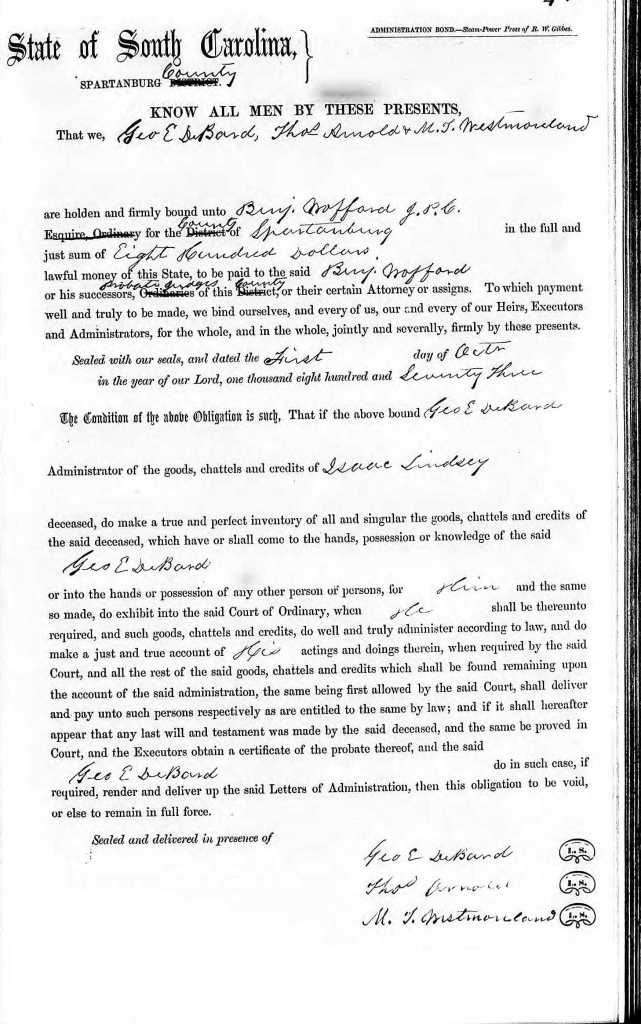 ADMINISTRATION BOND.—Steam-Power Press of R. W. Gibbes.
State of South Carolina, }
SPARTANBURG DISTRICT. County
KNOW ALL MEN BY THESE PRESENTS,
That we, Geo E DeBard, Thos Arnold & M. T. Westmoreland
are holden and firmly bound unto Benj. Wofford J. P. C.
Esquire, Ordinary for the District County of Spartanburg in the full and
just sum of Eight Hundred Dollars,
lawful money of this State, to be paid to the said Benj. Wofford
or his successors, Ordinaries Probate Judges of this District, County or their certain Attorney or assigns. To which payment
well and truly to be made, we bind ourselves, and every of us, our and every of our Heirs, Executors
and Administrators, for the whole, and in the whole, jointly and severally, firmly by these presents.
Sealed with our seals, and dated the First day of Octr
in the year of our Lord, one thousand eight hundred and Seventy Three
The Condition of the above Obligation is such, That if the above bound Geo E DeBard
Administrator of the goods, chattels and credits of Isaac Lindsey
deceased, do make a true and perfect inventory of all and singular the goods, chattels and credits of
the said deceased, which have or shall come to the hands, possession or knowledge of the said
Geo E DeBard
or into the hands or possession of any other person or persons, for Him and the same
so made, do exhibit into the said Court of Ordinary, when He shall be thereunto
required, and such goods, chattels and credits, do well and truly administer according to law, and do
make a just and true account of His actings and doings therein, when required by the said
Court, and all the rest of the said goods, chattels and credits which shall be found remaining upon
the account of the said administration, the same being first allowed by the said Court, shall deliver
and pay unto such persons respectively as are entitled to the same by law; and if it shall hereafter
appear that any last will and testament was made by the said deceased, and the same be proved in
Court, and the Executors obtain a certificate of the probate thereof, and the said
Geo E DeBard do in such case, if
required, render and deliver up the said Letters of Administration, then this obligation to be void,
or else to remain in full force.
Sealed and delivered in presence of
Geo E DeBard L. S.
Thos Arnold L. S.
M. T. Westmoreland L. S.